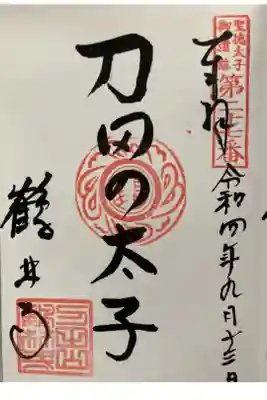 聖徳太子
御遺跡
第二十七番
奉拝
令和四年九月十三日
刀田の太子
鶴林寺